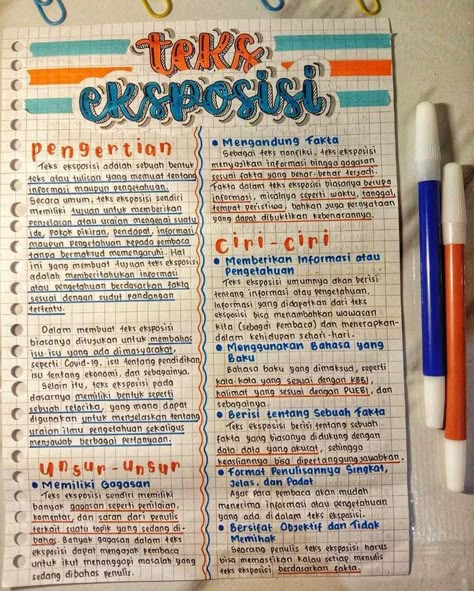 teks
eksposisi
pengertian
Teks eksposisi adalah sebuah bentuk
teks atau tulisan yang memuat tentang
informasi maupun pengetahuan.
Secara umum, teks eksposisi sendiri
memiliki tujuan untuk memberikan
penjelasan atau uraian mengenai suatu
ide, pokok pikiran, pendapat, informasi
maupun pengetahuan kepada pembaca
tanpa bermaksud memengaruhi. Hal
ini yang membuat tujuan teks eksposisi
adalah memberitahukan informasi
atau pengetahuan berdasarkan fakta
sesuai dengan sudut pandangan
tertentu.
Dalam membuat teks eksposisi
biasanya ditujukan untuk membahas
isu-isu yang ada dimasyarakat,
seperti Covid-19, isu tentang pendidikan,
isu tentang ekonomi, dan sebagainya.
Selain itu, teks eksposisi pada
dasarnya memiliki bentuk seperti
sebuah retorika, yang mana dapat
digunakan untuk menjelaskan tentang
uraian ilmu pengetahuan sekaligus
menjawab berbagai pertanyaan.
unsur-unsur
• Memiliki Gagasan
Teks eksposisi sendiri memiliki
banyak gagasan seperti penilaian,
komentar, dan saran dari penulis
terkait suatu topik yang sedang di-
bahas. Banyak gagasan dalam teks
eksposisi dapat mengajak pembaca
untuk ikut menanggapi masalah yang
sedang dibahas penulis.
• Mengandung Fakta
Sebagai teks nonfiksi, teks eksposisi
menyajikan informasi hingga gagasan
sesuai fakta yang benar-benar terjadi.
Fakta dalam teks eksposisi biasanya berupa
informasi, misalnya seperti waktu, tanggal,
tempat peristiwa, bahkan juga pernyataan
yang dapat dibuktikan kebenarannya.
ciri-ciri
• Memberikan Informasi atau
Pengetahuan
Teks eksposisi umumnya akan berisi
tentang informasi atau pengetahuan.
Informasi yang didapatkan dari teks
eksposisi bisa menambahkan wawasan
kita (sebagai pembaca) dan menerapkan-
dalam kehidupan sehari-hari.
• Menggunakan Bahasa yang
Baku
Bahasa baku yang dimaksud, seperti
kata-kata yang sesuai dengan KBBI,
kalimat yang sesuai dengan PUEBI, dan
sebagainya.
• Berisi tentang Sebuah Fakta
Teks eksposisi berisi tentang sebuah
fakta yang biasanya didukung dengan
data data yang akurat, sehingga
keasliannya bisa dipertanggungjawabkan.
• Format Penulisannya Singkat,
Jelas, dan Padat
Agar para pembaca akan mudah
menerima informasi atau pengetahuan
yang ada didalam teks eksposisi.
• Bersifat Objektif dan Tidak
Memihak
Seorang penulis teks eksposisi harus
bisa memastikan kalau setiap menulis
teks eksposisi berdasarkan fakta.